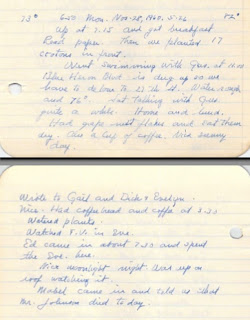 73° 6:50 Mon. Nov-28, 1960, 5:26 82°
Up at 7.15 and got breakfast
Read paper. Then we planted 17
crotons in front.
Went swimming with Geo. at 11.00
have to be down to 23 St. Water rough
and 76°. Sat talking with Geo.
quite a while. Home and lunch.
Had grape nut flakes and ate them
dry. Also a cup of coffee. Nice sunny
day.
Wrote to Gail and Dick & Evelyn.
Nice. Had coffee bread and coffee at 3.30
Watered plants.
Watched T.V. in Eve.
Ed came in about 7.30 and spent
the Eve. here.
Nice moonlight night. Was up on
roof watching it.
Mabel came in and told us that
Mr. Johnson died to day.